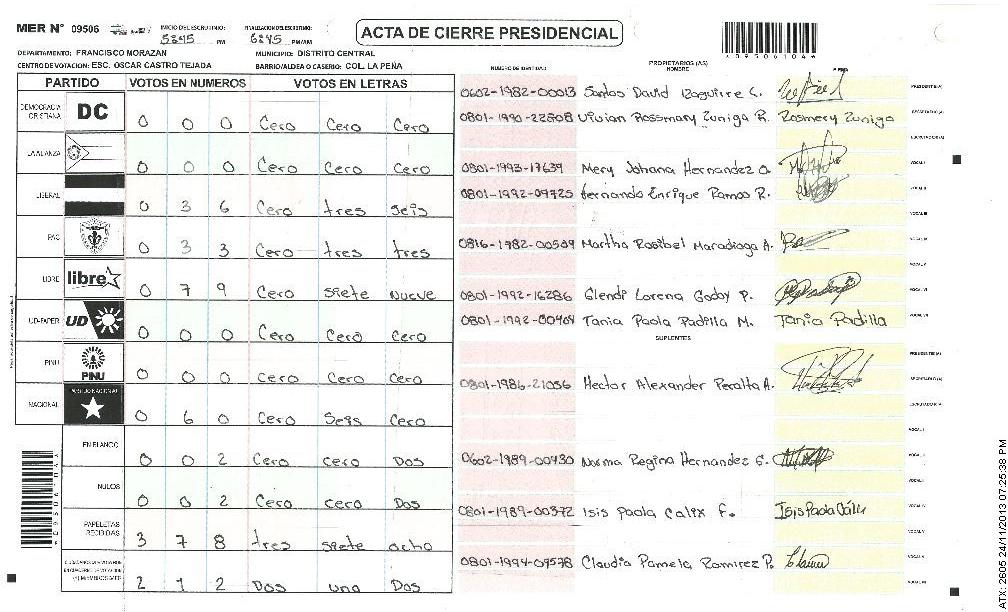 MER N° 09506 INICIO DEL ESCRUTINIO: 5:45 PM FINALIZACION DEL ESCRUTINIO: 6:45 PM/AM
ACTA DE CIERRE PRESIDENCIAL
DEPARTAMENTO: FRANCISCO MORAZAN MUNICIPIO: DISTRITO CENTRAL
CENTRO DE VOTACION: ESC. OSCAR CASTRO TEJADA BARRIO/ALDEA O CASERIO: COL. LA PEÑA
PARTIDO VOTOS EN NUMEROS VOTOS EN LETRAS
DEMOCRACIA CRISTIANA DC 0 0 0 Cero Cero Cero
LA ALIANZA 0 0 0 Cero Cero Cero
LIBERAL 0 3 6 Cero tres seis
PAC 0 3 3 Cero tres tres
LIBRE libre 0 7 9 Cero siete Nueve
UD-FAPER UD 0 0 0 Cero Cero Cero
PINU PINU 0 0 0 Cero Cero Cero
NACIONAL PARTIDO NACIONAL 0 6 0 Cero Seis Cero
EN BLANCO 0 0 2 Cero cero Dos
NULOS 0 0 2 Cero cero Dos
PAPELETAS RECIBIDAS 3 7 8 tres siete ocho
2 1 2 Dos uno Dos
NUMERO DE IDENTIDAD PROPIETARIOS (AS) NOMBRE FIRMA
0602-1982-00013 Santos David Izaguirre C. PRESIDENTE(A)
0801-1990-22808 Vivian Rossmary Zuniga R. Rosmery Zuniga SECRETARIO(A)
ESCRUTADOR(A)
0801-1993-17639 Mery Johana Hernandez O. VOCAL I
0801-1992-09725 Fernando Enrique Ramos R. VOCAL II
VOCAL III
0816-1982-00509 Martha Rosibel Maradiaga A. VOCAL IV
VOCAL V
0801-1992-16286 Glendi Lorena Godoy P. VOCAL VI
0801-1992-00404 Tania Paola Padilla M. Tania Padilla VOCAL VII
SUPLENTES
PRESIDENTE(A)
0801-1986-21056 Hector Alexander Peralta A. SECRETARIO(A)
ESCRUTADOR(A)
VOCAL I
0602-1989-00430 Norma Regina Hernandez G. VOCAL II
VOCAL III
0801-1989-00372 Isis Paola Calix F. Isis Paola Cálix VOCAL IV
VOCAL V
0801-1994-09578 Claudia Pamela Ramirez P. VOCAL VI
VOCAL VII
ATX: 2605 24/11/2013 07:25:38 PM